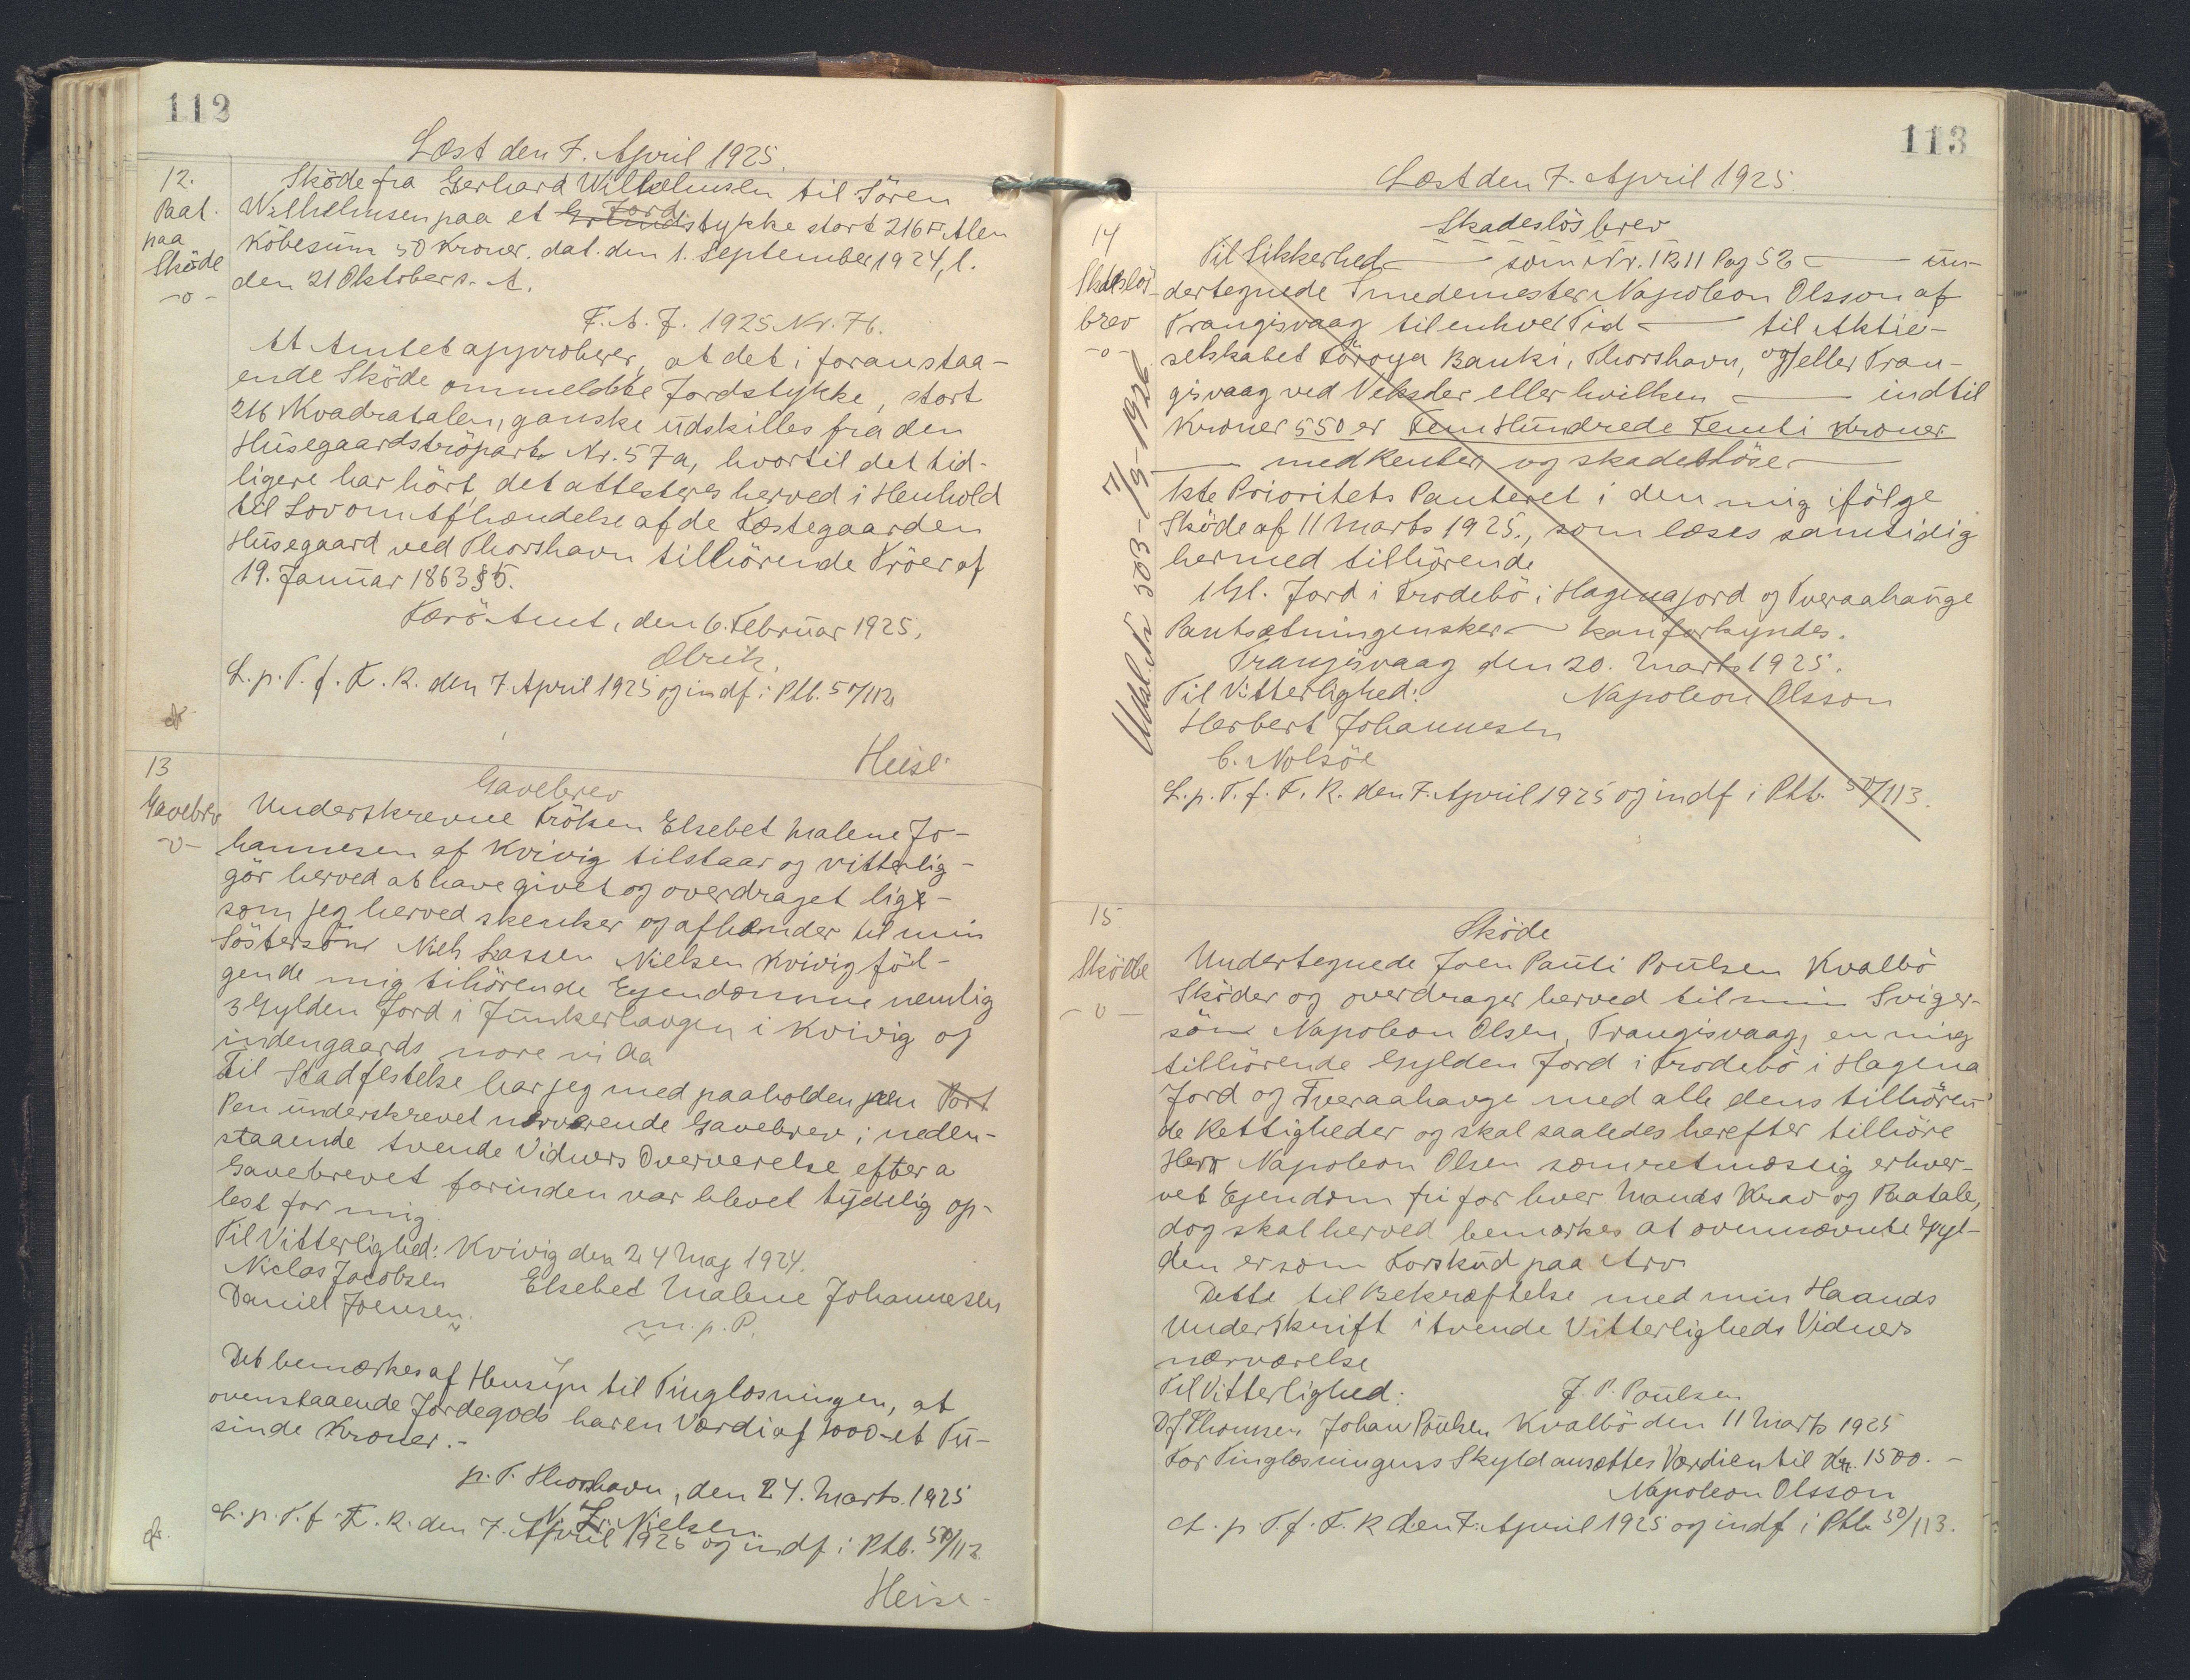 112
Læst den 7. April 1925.
12.
Paat.
paa
Sköde
-o-
Sköde fra Gerhard Wilhelmsen til Sören
Wilhelmsen paa et Grundstykke Jord stort 216 □ Alen
Köbesum 50 Kroner. dat. den 1. September 1924, l.
den 21 Oktober s. A.
F. A. J. 1925 Nr. 76.
At Amtet approberer, at det i foranstaa-
ende Sköde ommeldte Jordstykke, stort
216 Kvadratalen, ganske udskilles fra den
Husegaardströpart Nr. 57a, hvortil det tid-
ligere har hört, det attesteres herved i Henhold
til Lov om Afhændelse af de Fæstegaarden
Husegaard ved Thorshavn tilhörende Tröer af
19. Januar 1863 § 5.
Færö Amt, den 6. Februar 1925.
L. p. T. f. F. R. den 7. April 1925 og indf. i Ptb. 50/112
Heise
13
Gavebrev
-o-
Gavebrev
Underskrevne Fröken Elsebet Malene Jo-
hannesen af Kvivig tilstaar og vitterlig-
gör herved at have givet og overdraget lige-
som jeg herved skenker og afhænder til min
Söstersön Niels Lassen Nielsen Kvivig föl-
gende mig tilhörende Ejendomme nemlig
3 Gylden Jord i Junkerhavgen i Kvivig og
indengaards nore vi Aa
Til Stadfestelse har jeg med paaholden pen Port
Pen underskrevet nærværende Gavebrev i neden-
staaende tvende Vidners Overværelse efter a
Gavebrevet forinden var blevet tydelig op-
lest for mig.
Til Vitterlighed: Kvivig den 24 Maj 1924.
Niclas Jacobsen
Elsebet Malene Johannesen
Daniel Joensen
m. p. P.
Det bemærkes af Hensyn til Tinglæsningen, at
ovenstaaende Jordegods har en Værdi af 1000 - et Tu-
sinde Kroner.-
p. T. Thorshavn, den 24. Marts 1925
N. L. Nielsen.
L. p. T. f F. R. den 7. April 1925 og indf i Ptb. 50/112.
Heise
113
Læst den 7. April 1925.
14
Skadeslös-
brev
-o-
Udsl. Nr 503 - 7/9-1926
Skadeslösbrev
Til Sikkerhed — som Nr. 12 11 Pag 52 — un-
dertegnede Smedemester Napoleon Olsson af
Trangisvaag til enhver Tid — til Aktie-
selskabet Föroya Banki, Thorshavn, og/eller Tran-
gisvaag ved Veksler eller hvilken — indtil
Kroner 550 er Fem Hundrede Femti Kroner
— med Renter og skadeslöse —
1ste Prioritets Panteret i den mig ifölge
Sköde af 11 Marts 1925., som læses samtidig
hermed tilhörende
1 Gl. Jord i Frodebö i Hagenajord og Tveraahauge
Pantsætningen sker — kan forkyndes.
Trangisvaag den 20. Marts 1925.
Til Vitterlighed: Napoleon Olsson
Herbert Johannesen
C. Nolsöe
L. p. T. f. F. R. den 7. April 1925 og indf i Ptb. 50/113.
15
Sköde
-o-
Sköde
Undertegnede Joen Pauli Poulsen Kvalbö
Sköder og overdrager herved til min Sviger-
sön Napoleon Olsen, Trangisvaag, en mig
tilhörende Gylden Jord i Frodebö i Hagena
Jord og Tveraahavge med alle dens tilhören-
de Rettigheder og skal saaledes herefter tilhöre
Herr Napoleon Olsen som retmæssig erhver-
vet Ejendom fri for hver Mands Krav og Paatale,
dog skal herved bemærkes at ovennævnte Gyl-
den er som Forskud paa Arv
Dette til Bekræftelse med min Haands
Underskrift i tvende Vitterligheds Vidners
nærværelse
Til Vitterlighed: J. P. Poulsen
D J Thomsen Johan Poulsen Kvalbö den 11 Marts 1925
For Tinglæsningens Skyld ansættes Værdien til Kr. 1500. -
Napoleon Olsson
L. p. T. f. F. R den 7. April 1925 og indf i Ptb 50/113.